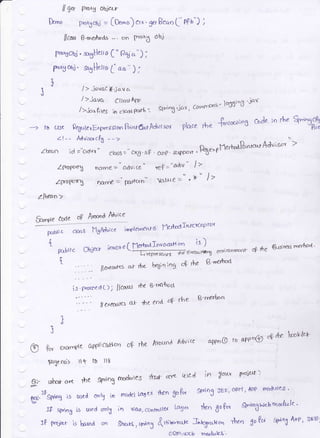 // get proxy object
Demo proxyObj = (Demo) ctx.getBean("pfb");
// call B-methods ... on proxy obj
proxyObj.sayHello("Raja");
proxyObj.sayHello("aa");
}
}
/> javac *.java
/> java ClientApp
/> jar files in classpath: spring.jar, commons-logging.jar
→ to use RegularExpression PointCut Advisor place the following code in the Spring cfg file
<!-- Advisor cfg -->
<bean id="advr" class="org.sf.aop.support.RegexpMethodPointcutAdvisor">
<property name="advice" ref="adv" />
<property name="pattern" value=".*" />
</bean>
Sample code of Around Advice
public class MyAdvice implements MethodInterceptor
{
public Object invoke(MethodInvocation is)
→ represents the environment of the Business method.
{
// executes at the begining of the B-method
is.proceed(); // calls the B-method
// executes at the end of the B-method
}
}
* for example application of the Around Advice app⑪ to app of the booklet
page no's 114 to 118
Q:- what are the spring modules that are used in your project?
Ans: If Spring is used only in model layer then go for spring JEE, ORM, AOP modules.
If spring is used only in view, controller layer then go for Spring web module.
If project is based on Struts, spring & Hibernate Integration then go for spring AOP, JEE,
ORM, web modules.